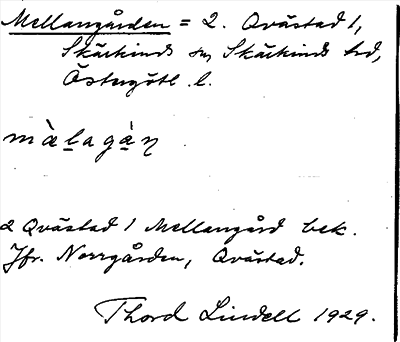 Mellangården = 2. Qvästad 1,
Skärkinds sn, Skärkinds hd,
Östergötl. l.
màlagàn
2 Qvästad 1 Mellangård bek.
Jfr. Norrgården, Qvästad.
Thord Lindell 1929.